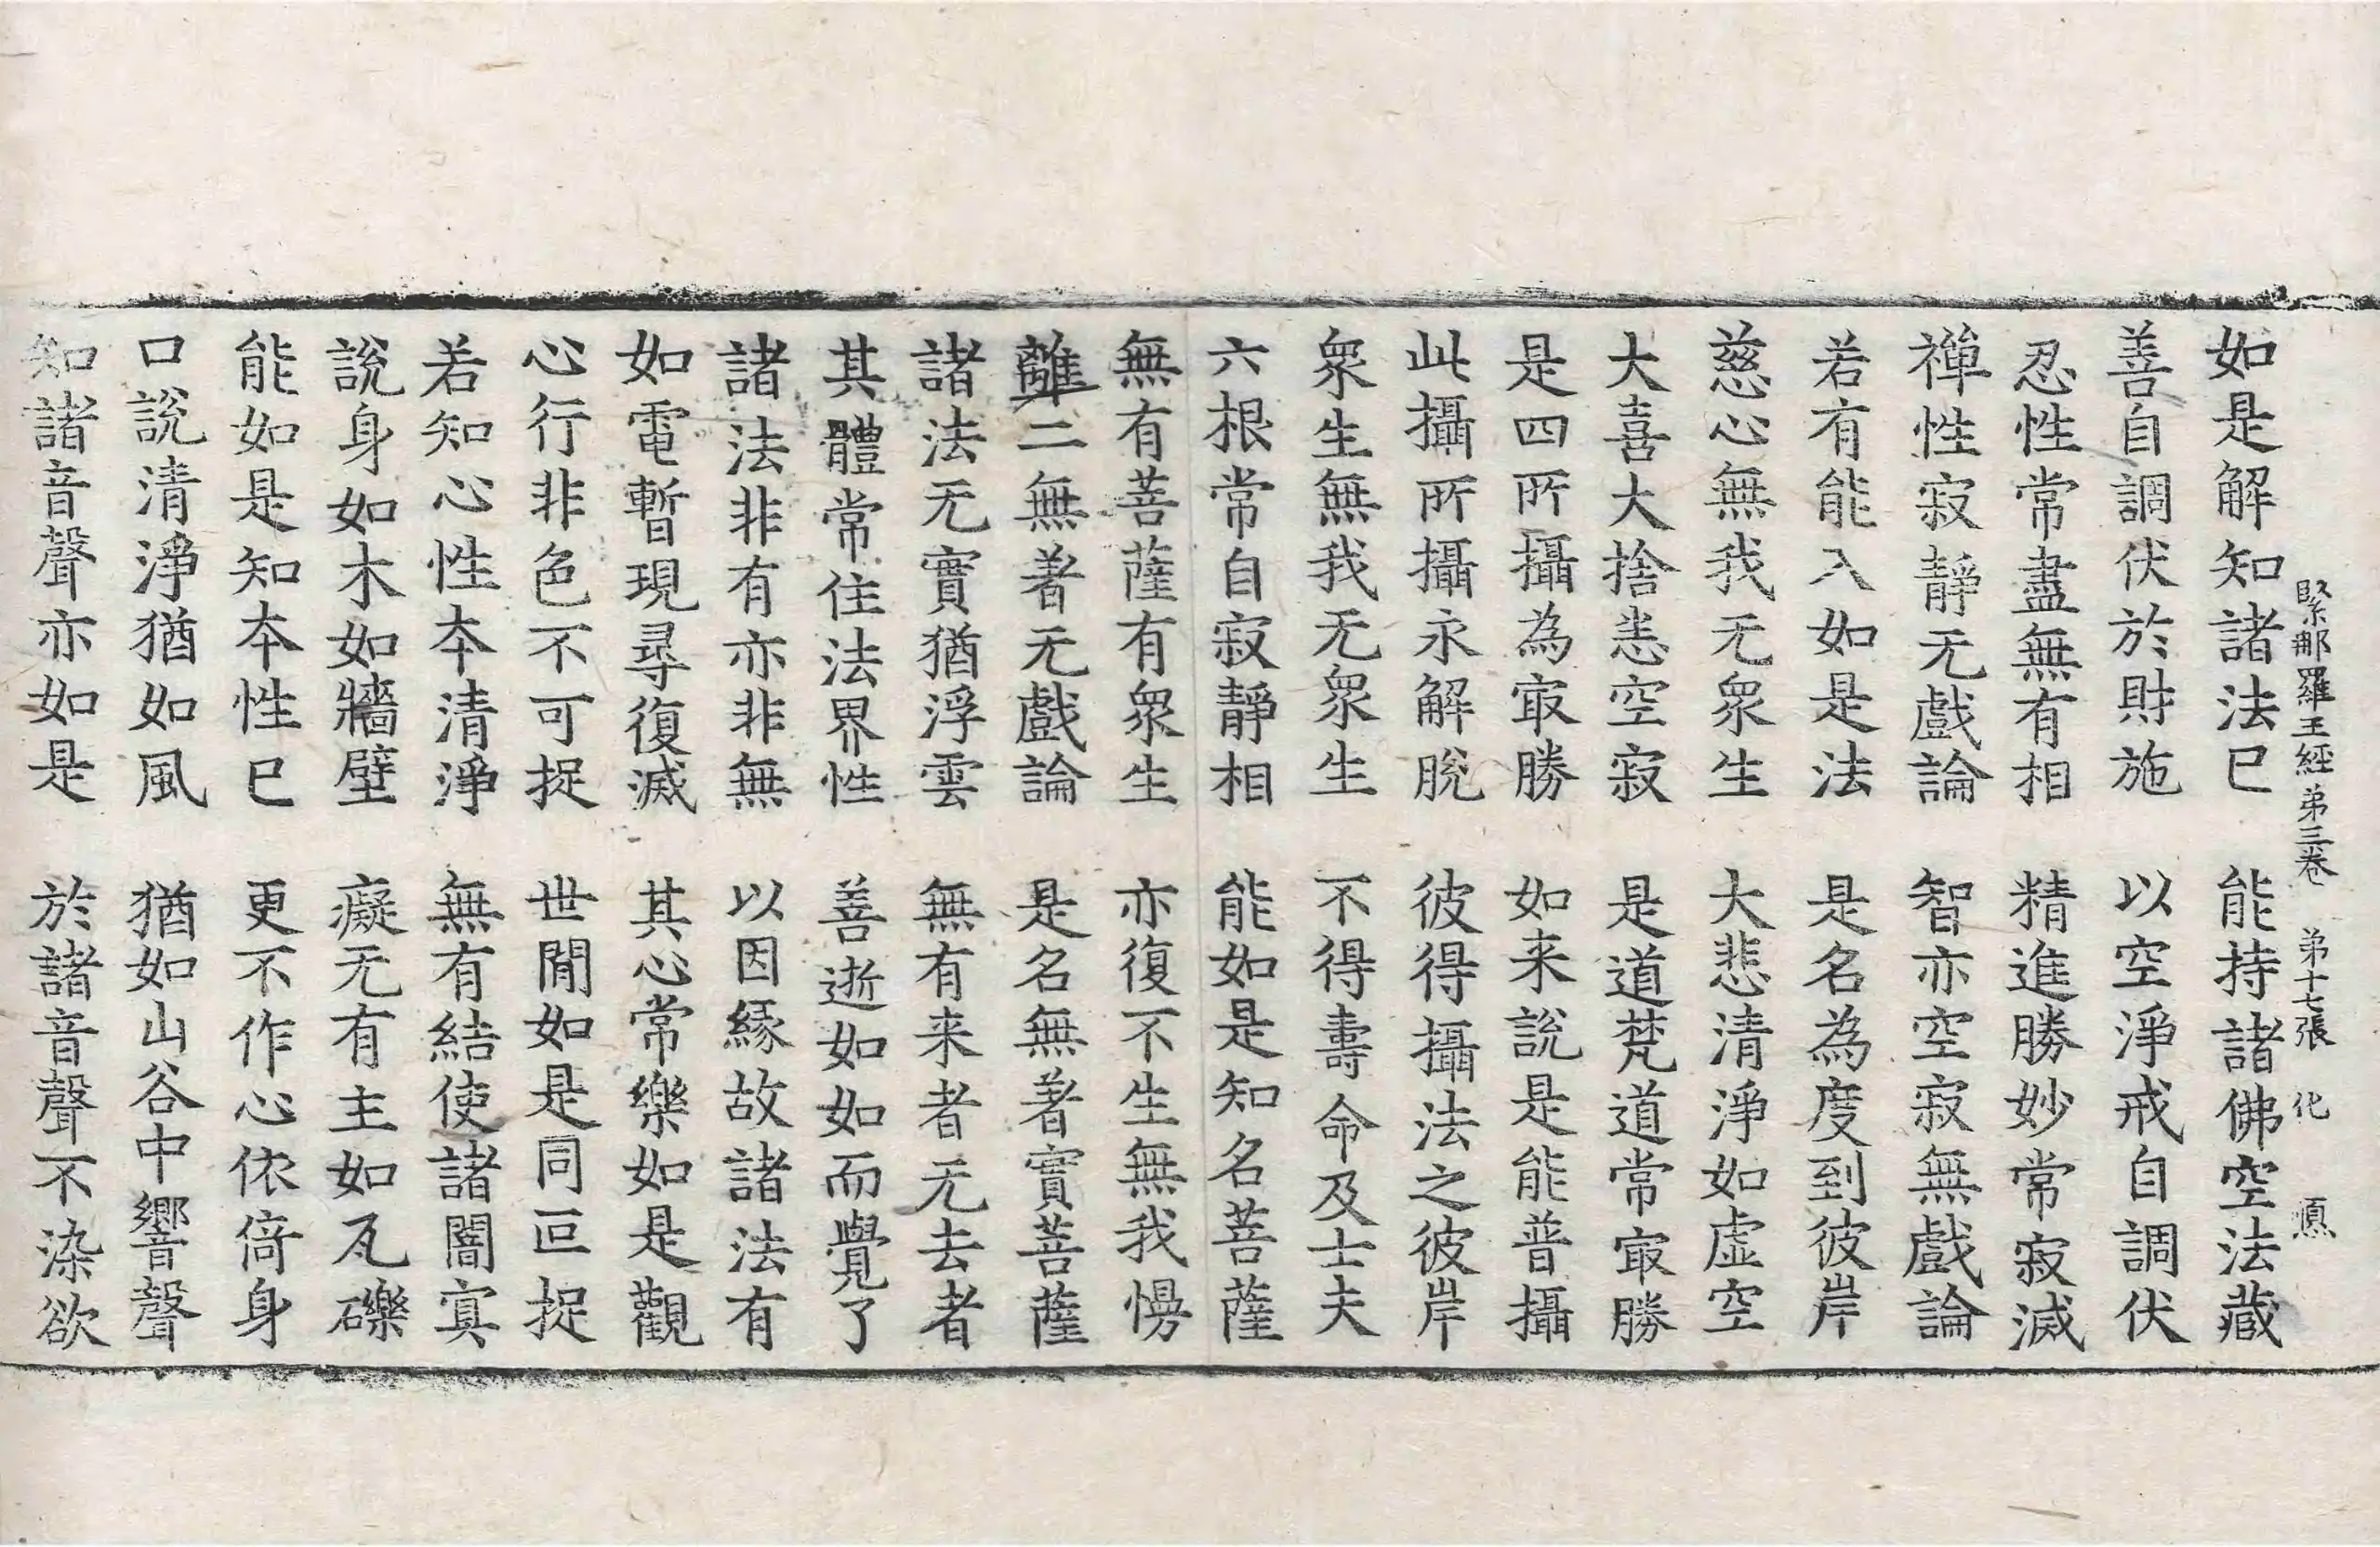 緊那羅王經第三卷 第十七張 化 順
如是解知諸法已 能持諸佛空法藏
善自調伏於財施 以空淨戒自調伏
忍性常盡無有相 精進勝妙常寂滅
禪性寂靜无戲論 智亦空寂無戲論
若有能入如是法 是名為度到彼岸
慈心無我无眾生 大悲清淨如虛空
大喜大捨恚空寂 是道梵道常㝡勝
是四所攝為㝡勝 如来說是能普攝
此攝所攝永解脫 彼得攝法之彼岸
眾生無我无眾生 不得壽命及士夫
六根常自寂靜相 能如是知名菩薩
無有菩薩有眾生 亦復不生無我慢
離二無著无戲論 是名無著實菩薩
諸法无實猶浮雲 無有来者无去者
其體常住法界性 善逝如如而覺了
諸法非有亦非無 以因緣故諸法有
如電暫現尋復滅 其心常樂如是觀
心行非色不可捉 世間如是同叵捉
若知心性本清淨 無有結使諸闇冥
說身如木如牆壁 癡无有主如瓦礫
能如是知本性已 更不作心依倚身
口說清淨猶如風 猶如山谷中響聲
知諸音聲亦如是 於諸音聲不染欲